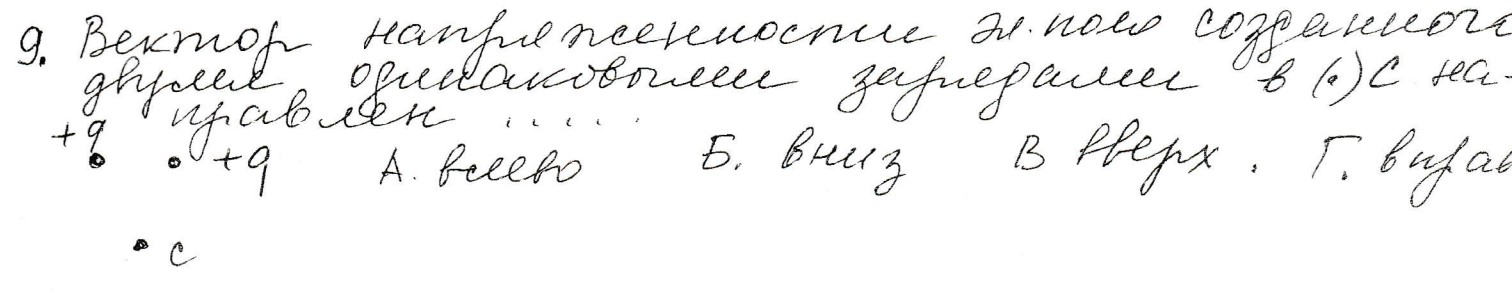 9. Вектор напряженности эл. поля созданного
двумя одинаковыми зарядами в (•) С на-
правлен .....
+q
+q А. влево Б. вниз В вверх. Г. вправ
С